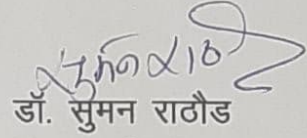 सुमन राठौड
डॉ. सुमन राठौड